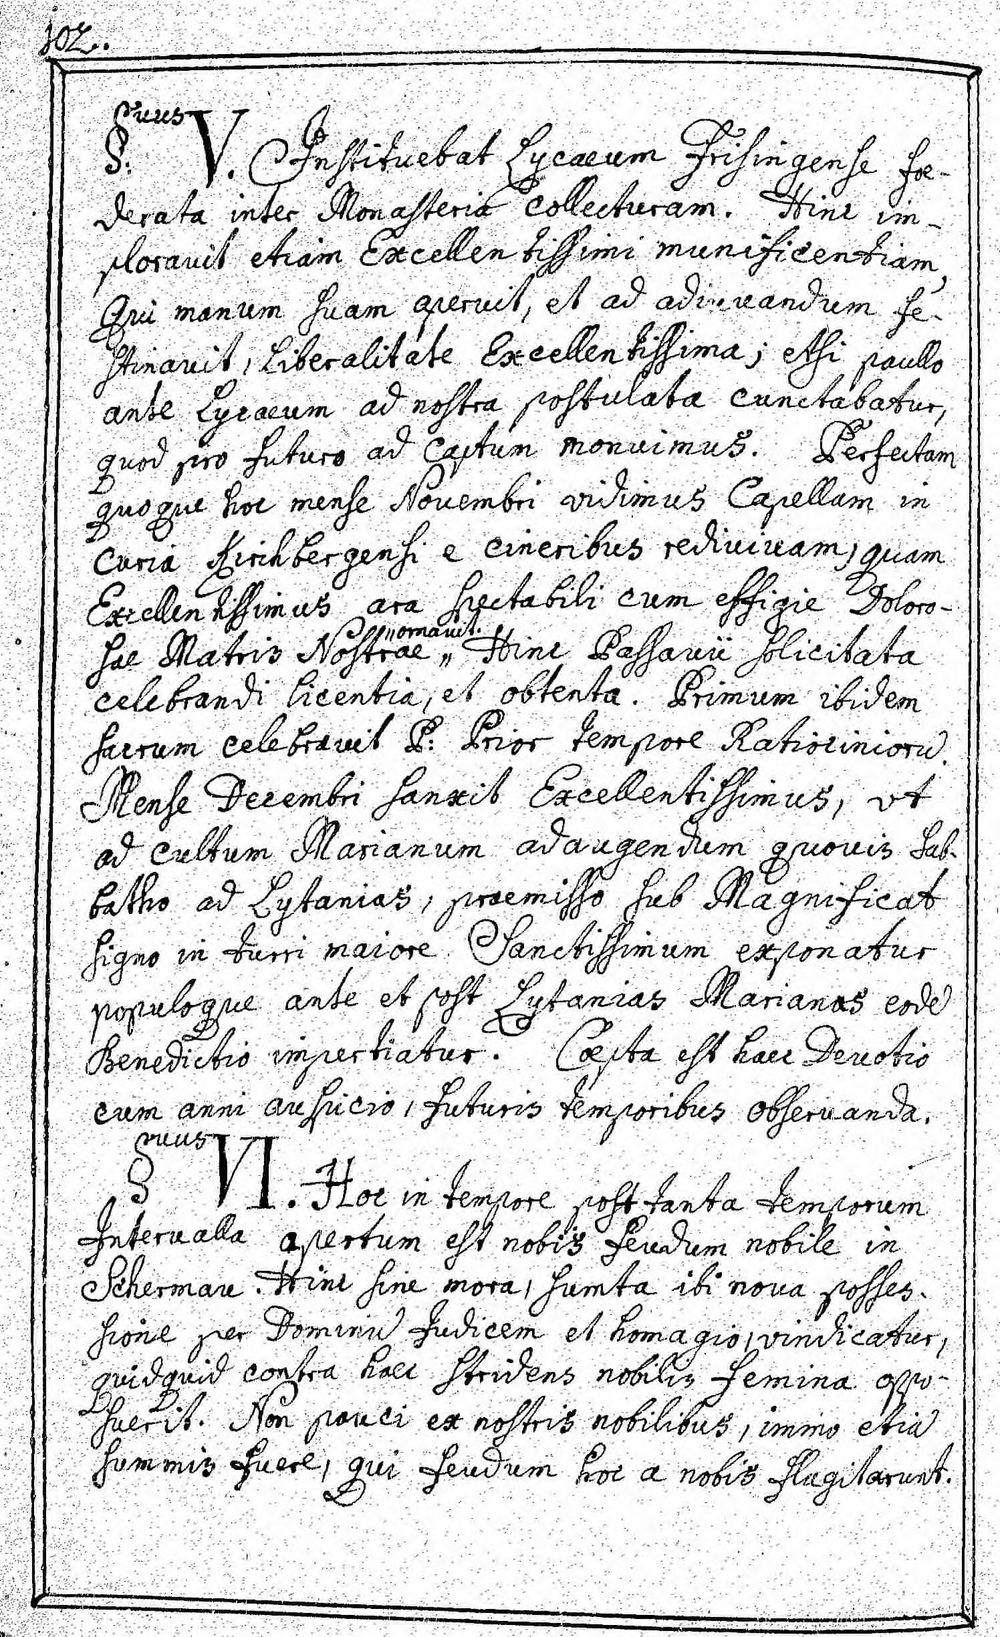 102.
§.phus V. Instituebat Lycaeum Frisingense foe-
derata inter Monasteria collecturam. Hinc im-
ploravit etiam Excellentissimi munificentiam,
Qui manum suam aperuit, et ad adiuvandum fe-
stinavit, Liberalitate Excellentissima; etsi paullo
ante Lycaeum ad nostra postulata cunctabatur,
quod pro futuro ad Captum monuimus. Perfectam
quoque hoc mense Novembri vidimus Capellam in
Curia Kirchbergensi e cineribus redivivam, quam
Excellentissimus ara spectabili cum effigie Doloro-
sae Matris Nostrae „ornavit.„ Hinc Passavii solicitata
celebrandi licentia, et obtenta. Primum ibidem
sacrum celebravit P: Prior tempore Ratiociniorū.
Mense Decembri sanxit Excellentissimus, vt
ad cultum Marianum adaugendum quovis Sab-
batho ad Lytanias, praemisso sub Magnificat
signo in turri maiore Sanctissimum exponatur
populoque ante et post Lytanias Marianas eodē
Benedictio impertiatur. Coepta est haec Devotio
cum anni auspicio, futuris temporibus observanda.
§phus VI. Hoc in tempore post tanta temporum
Intervalla apertum est nobis feudum nobile in
Schermau. Hinc sine mora, sumta ibi nova posses-
sione per Dominū Judicem et homagio, vindicatur,
quidquid contra haec stridens nobilis femina oppo-
suerit. Non pauci ex nostris nobilibus, immo etiā
summis fuere, qui feudum hoc a nobis flagitarunt.